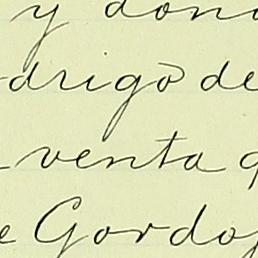 y dond
drigo de
venta q
e Gordo